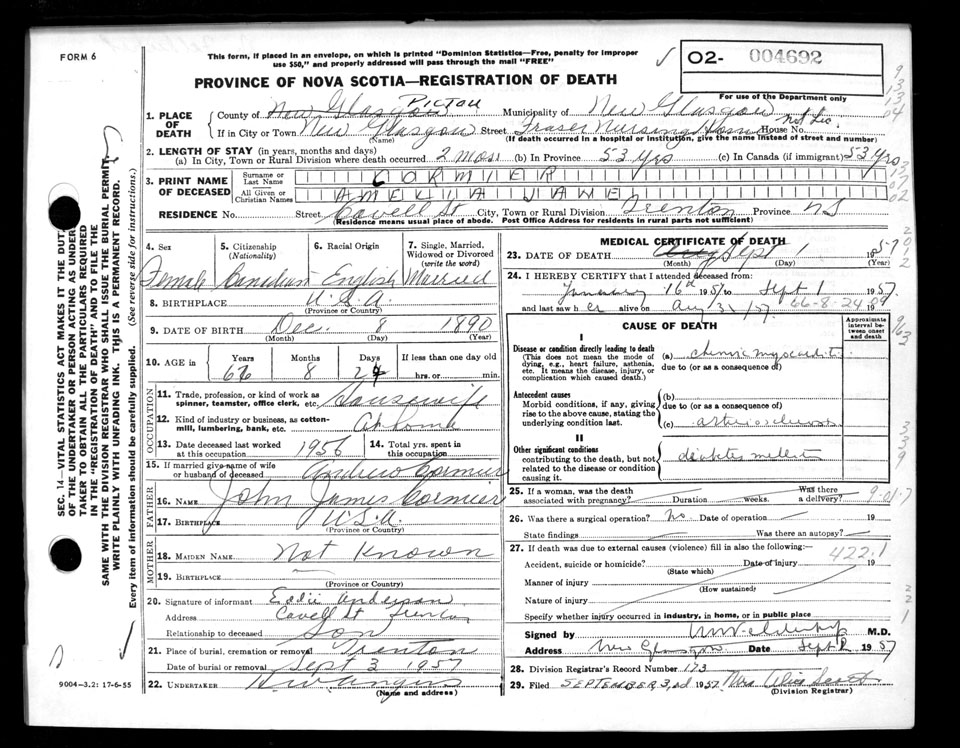 FORM 6
This form, if placed in an envelope, on which is printed "Dominion Statistics—Free, penalty for improper
use $50," and properly addressed will pass through the mail "FREE"
02- 004692
PROVINCE OF NOVA SCOTIA—REGISTRATION OF DEATH
For use of the Department only
1. PLACE OF DEATH
County of New Glasgow PICTOU Municipality of New Glasgow
If in City or Town New Glasgow Street Fraser Nursing Home House No. not Lic.
(Name) (If death occurred in a hospital or institution, give the name instead of street and number)
2. LENGTH OF STAY (in years, months and days)
(a) In City, Town or Rural Division where death occurred 2 mos (b) In Province 53 yrs (c) In Canada (if immigrant) 53 yrs
3. PRINT NAME OF DECEASED
Surname or Last Name CORMIER
All Given or Christian Names AMELIA JANE
RESIDENCE No. Street Cavell St City, Town or Rural Division Trenton Province NS
(Residence means usual place of abode. Post Office Address for residents in rural parts not sufficient)
4. Sex Female
5. Citizenship (Nationality) Canadian
6. Racial Origin English
7. Single, Married, Widowed or Divorced (write the word) Married
8. BIRTHPLACE U.S.A.
(Province or Country)
9. DATE OF BIRTH Dec. 8 1890
(Month) (Day) (Year)
10. AGE in Years 66 Months 8 Days 24 If less than one day old
hrs. or min.
OCCUPATION
11. Trade, profession, or kind of work as spinner, teamster, office clerk, etc. Housewife
12. Kind of industry or business, as cotton-mill, lumbering, bank, etc. At home
13. Date deceased last worked at this occupation 1956
14. Total yrs. spent in this occupation
15. If married give name of wife or husband of deceased Andrew Cormier
FATHER
16. NAME John James Cormier
17. BIRTHPLACE U.S.A.
(Province or Country)
MOTHER
18. MAIDEN NAME Not Known
19. BIRTHPLACE
(Province or Country)
20. Signature of informant Eddie Anderson
Address Cavell St Trenton
Relationship to deceased Son
21. Place of burial, cremation or removal Trenton
Date of burial or removal Sept 3 1957
22. UNDERTAKER
(Name and address)
9004—3.2: 17-6-55
MEDICAL CERTIFICATE OF DEATH
23. DATE OF DEATH Aug Sept 1 1957
(Month) (Day) (Year)
24. I HEREBY CERTIFY that I attended deceased from
January 16th 1957 to Sept 1 1957
and last saw her alive on Aug 31/57 66-8-24 09
CAUSE OF DEATH
Approximate interval between onset and death
I
Disease or condition directly leading to death
(This does not mean the mode of dying, e.g., heart failure, asthenia, etc. It means the disease, injury, or complication which caused death.)
(a) chronic myocarditis
due to (or as a consequence of)
Antecedent causes
Morbid conditions, if any, giving rise to the above cause, stating the underlying condition last.
(b)
due to (or as a consequence of)
(c)
II
Other significant conditions
contributing to the death, but not related to the disease or condition causing it.
25. If a woman, was the death associated with pregnancy? Duration weeks. Was there a delivery?
26. Was there a surgical operation? No Date of operation 19
State findings Was there an autopsy?
27. If death was due to external causes (violence) fill in also the following:— 422.1
Accident, suicide or homicide? Date of injury 19
(State which)
Manner of injury
(How sustained)
Nature of injury
Specify whether injury occurred in industry, in home, or in public place
Signed by M.D.
Address New Glasgow Date Sept 2 1957
28. Division Registrar's Record Number 173
29. Filed SEPTEMBER 3rd 1957 Mrs
(Division Registrar)
SEC. 14—VITAL STATISTICS ACT MAKES IT THE DUTY
OF THE UNDERTAKER OR PERSON ACTING AS UNDER-
TAKER TO OBTAIN ALL THE PARTICULARS REQUIRED
IN THE "REGISTRATION OF DEATH" AND TO FILE THE
SAME WITH THE DIVISION REGISTRAR WHO SHALL ISSUE THE BURIAL PERMIT.
WRITE PLAINLY WITH UNFADING INK. THIS IS A PERMANENT RECORD.
Every item of information should be carefully supplied. (See reverse side for instructions.)